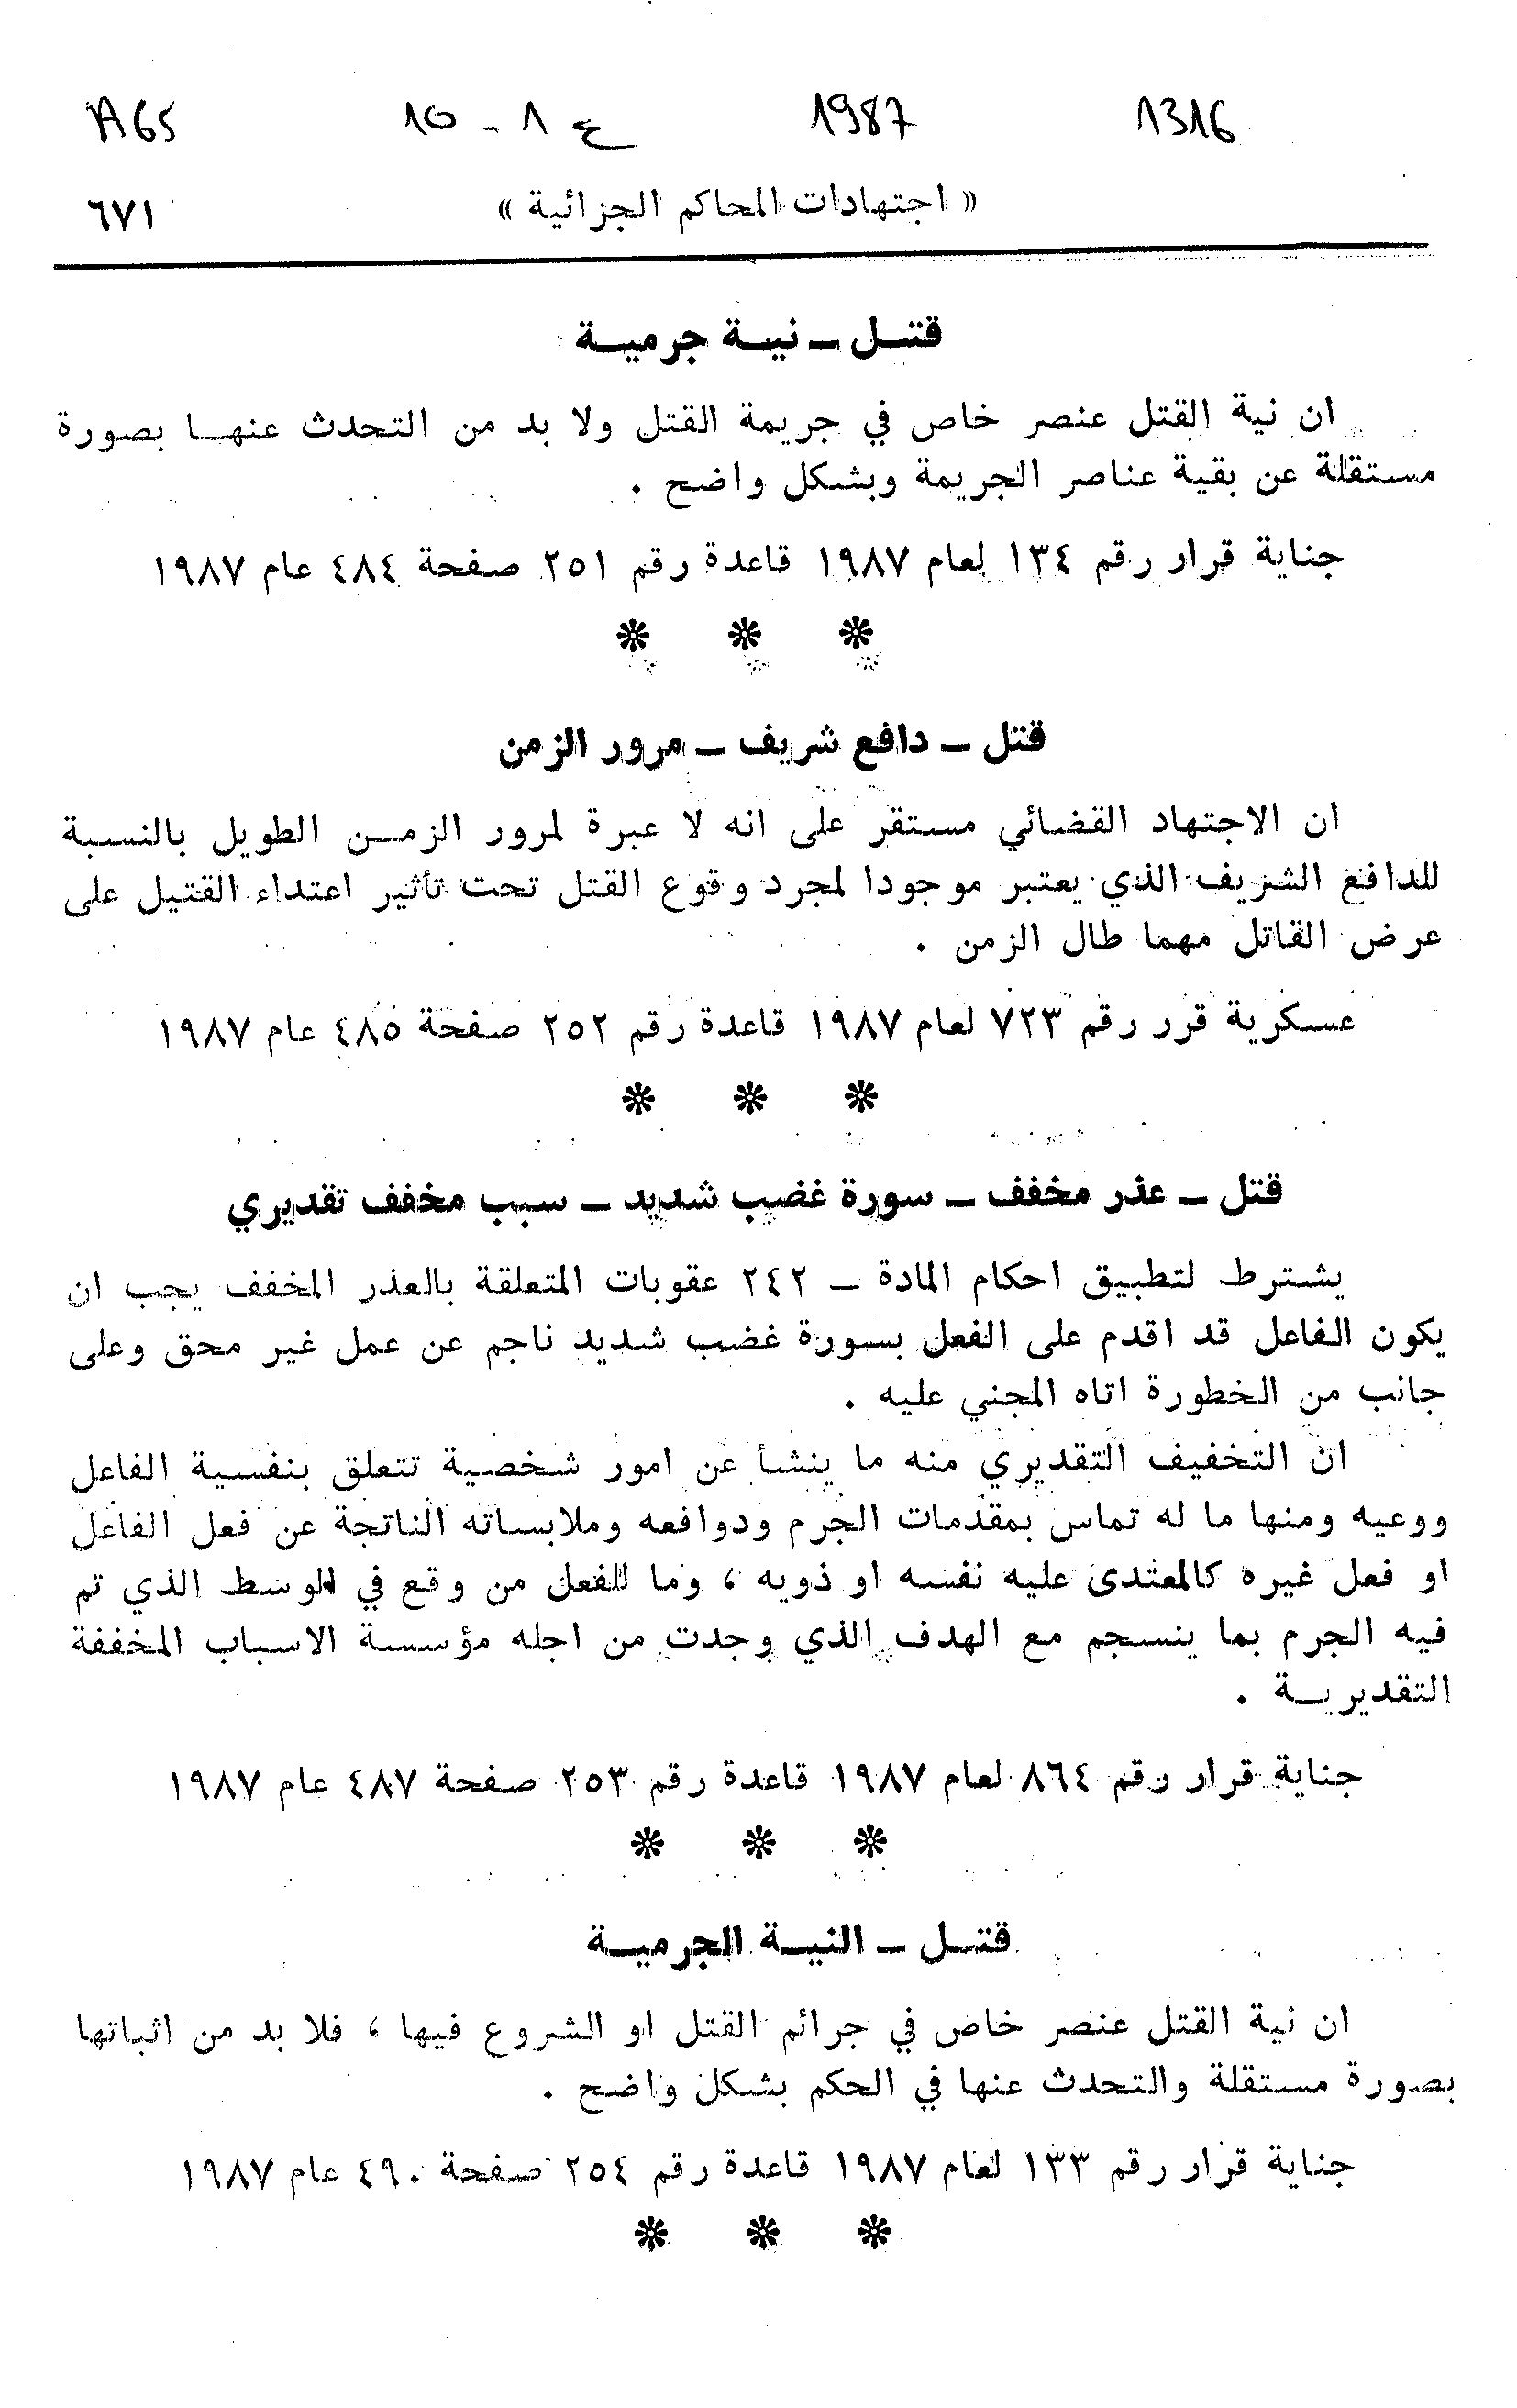 1316 1987 ع ١ - ١٥ A65
« اجتهادات المحاكم الجزائية » ٦٧١
قتــل ــ نيــة جرميــة
ان نية القتل عنصر خاص في جريمة القتل ولا بد من التحدث عنهــا بصورة
مستقلة عن بقية عناصر الجريمة وبشكل واضح .
جناية قرار رقم ١٣٤ لعام ١٩٨٧ قاعدة رقم ٢٥١ صفحة ٤٨٤ عام ١٩٨٧
* * *
قتل ــ دافع شريف ــ مرور الزمن
ان الاجتهاد القضائي مستقر على انه لا عبرة لمرور الزمــن الطويل بالنسبة
للدافع الشريف الذي يعتبر موجودا لمجرد وقوع القتل تحت تأثير اعتداء القتيل على
عرض القاتل مهما طال الزمن .
عسكرية قرر رقم ٧٢٣ لعام ١٩٨٧ قاعدة رقم ٢٥٢ صفحة ٤٨٥ عام ١٩٨٧
* * *
قتل ــ عذر مخفف ــ سورة غضب شديد ــ سبب مخفف تقديري
يشترط لتطبيق احكام المادة ــ ٢٤٢ عقوبات المتعلقة بالعذر المخفف يجب ان
يكون الفاعل قد اقدم على الفعل بسورة غضب شديد ناجم عن عمل غير محق وعلى
جانب من الخطورة اتاه المجني عليه .
ان التخفيف التقديري منه ما ينشأ عن امور شخصية تتعلق بنفسية الفاعل
ووعيه ومنها ما له تماس بمقدمات الجرم ودوافعه وملابساته الناتجة عن فعل الفاعل
او فعل غيره كالمعتدى عليه نفسه او ذويه ، وما للفعل من وقع في الوسط الذي تم
فيه الجرم بما ينسجم مع الهدف الذي وجدت من اجله مؤسسة الاسباب المخففة
التقديريــة .
جناية قرار رقم ٨٦٤ لعام ١٩٨٧ قاعدة رقم ٢٥٣ صفحة ٤٨٧ عام ١٩٨٧
* * *
قتــل ــ النيــة الجرميــة
ان نية القتل عنصر خاص في جرائم القتل او الشروع فيها ، فلا بد من اثباتها
بصورة مستقلة والتحدث عنها في الحكم بشكل واضح .
جناية قرار رقم ١٣٣ لعام ١٩٨٧ قاعدة رقم ٢٥٤ صفحة ٤٩٠ عام ١٩٨٧
* * *